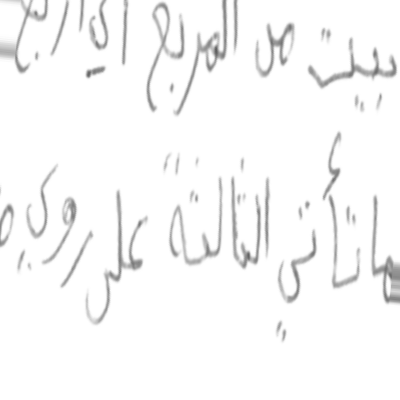 بيت من المربع إلى الأربع
ما تأتي الثالثة على روي